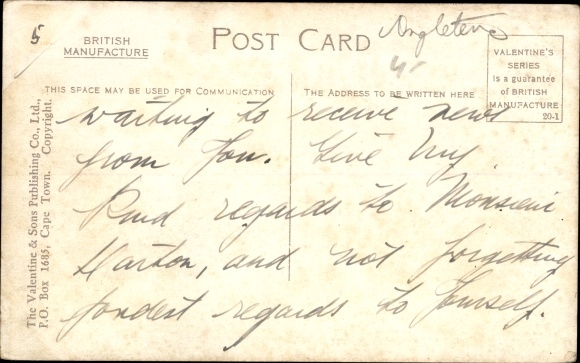 5
BRITISH
MANUFACTURE
POST CARD
Angleterre
VALENTINE'S
SERIES
is a guarantee
of BRITISH
MANUFACTURE
20-1
THIS SPACE MAY BE USED FOR COMMUNICATION
THE ADDRESS TO BE WRITTEN HERE
The Valentine & Sons Publishing Co., Ltd.,
P.O. Box 1685, Cape Town. Copyright.
waiting to receive news
from You. Give my
Kind regards to Monsieur
and not forgetting
fondest regards to Yourself.